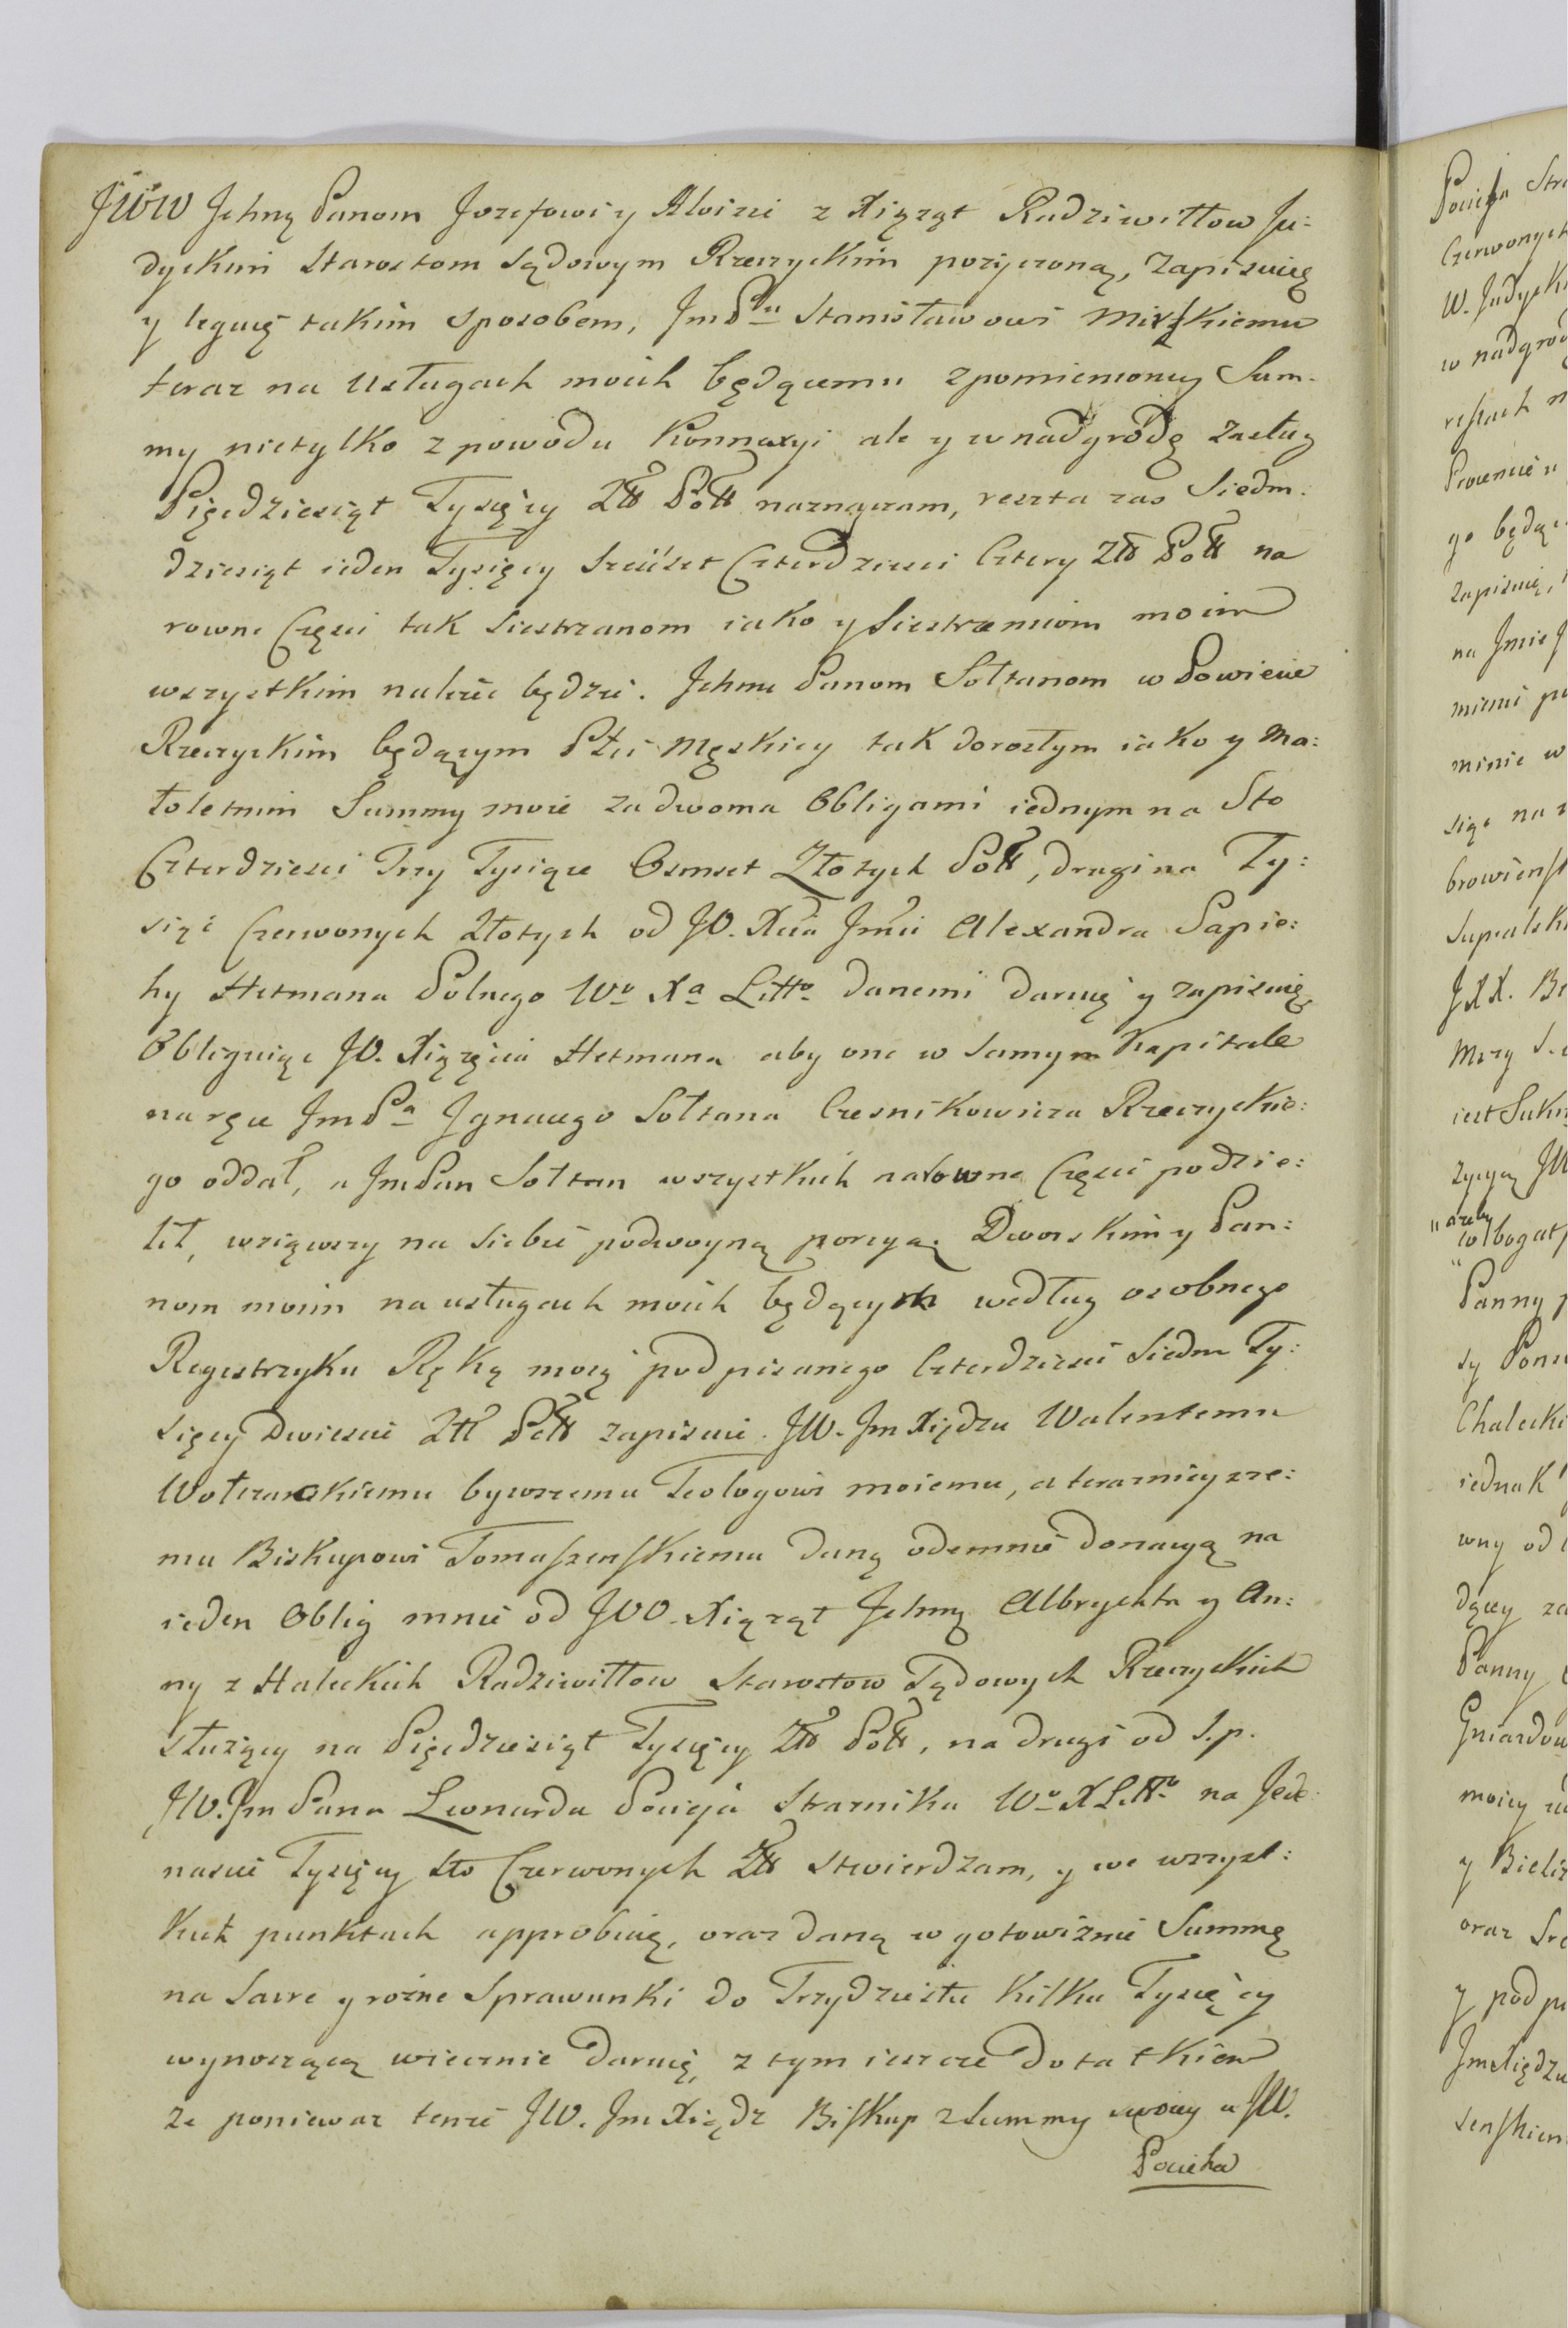 JWW Jchmę Panom Jozefowi y Aloizei z Xiąząt Radziwiłłow Ju:
dyckim Starostom Sądowym Rzeczyckim pożyczoną, Zapisuię
y leguię takim Sposobem, JmPnu Stanisławowi Mirskiemu
teraz na Usługach moich będącemu z pomienioney Sum-
my nietylko z powodu Konnexyi ale y w nadgrodę Zasług
Pięćdziesiąt Tysięcy Złł Poll naznaczam, reszta zas Siedm:
dziesiąt ieden Tysięcy Sześćset Czterdziesci Cztery Złł Poll na
rowne Częsci tak Siestrzanom iako y Siestrzenicom moim
wszystkim należeć będzie. Jchmu Panom Sołtanom w Powiecie
Rzeczyckim będącym Płci Męskiey tak dorosłym iako y Ma:
łoletnim Summy moie za dwoma Obligami iednym na Sto
Czterdziesci Trzy Tysiące Osmset Złotych Poll, drugi na Ty:
siąc Czerwonych Złotych od JO. Xcia Jmci Alexandra Sapie:
hy Hetmana Polnego Wo Xa Litto danemi daruię y zapisuię,
Obliguiąc JO. Xiążęcia Hetmana aby one w samym Kapitale
na ręce JmPa Jgnacego Sołtana Czesnikowicza Rzeczyckie:
go oddał, a JmPan Sołtan wszystkich na rowne Częsci podzie:
lił, wziąwszy na siebie podwoyną porcyą. Dworskim y Pan:
nom moim na usługach moich będącym według osobnego
Regestrzyku Ręką moią podpisanego Czterdziesci Siedm Ty:
sięcy Dwiescie Złł Poll zapisuie. JW. Jm Xiędzu Walentemu
Wołczanskiemu bywszemu Teologowi moiemu, a teraznieysze:
mu Biskupowi Tomaszenskiemu daną odemnie donacyą na
ieden Oblig mnie od JOO. Xiąząt Jchmę Albrychta y An:
ny z Haleckich Radziwiłłow Starostow Sądowych Rzeczyckich
służący na Pięćdziesiąt Tysięcy Złł Poll, na drugi od S.p.
JW. Jm Pana Leonarda Pocieja Straznika Wo X Litto na Jede:
nascie Tysięcy sto Czerwonych Złł stwierdzam, y we wszyst:
kich punktach approbuię, oraz daną w gotowiznie Summę
na Sacre y rożne Sprawunki do Trzydziestu kilku Tysięcy
wynoszącą wiecznie daruię, z tym ieszcze dotatkiem
że poniewaz tenże JW. Jm Xiądz Biskup z Summy swoiey u JW.
Pocieha